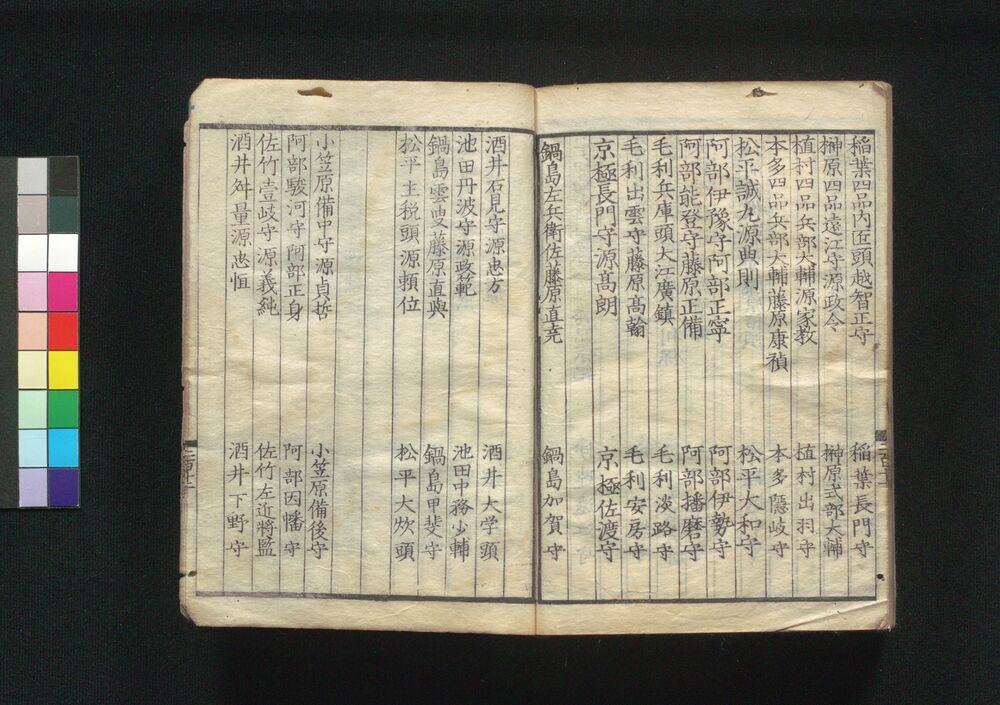 稲葉四品内匠頭越智正守 稲葉長門守
榊原四品遠江守源政令 榊原式部大輔
植村四品兵部大輔源家教 植村出羽守
本多四品兵部大輔藤原康禎 本多隠岐守
松平誠丸源典則 松平大和守
阿部伊豫守阿部正寧 阿部伊勢守
阿部能登守藤原正備 阿部播磨守
毛利兵庫頭大江廣鎮 毛利淡路守
毛利出雲守藤原高翰 毛利安房守
京極長門守源高朗 京極佐渡守
鍋島左兵衛佐藤原直堯 鍋島加賀守
酒井石見守源忠方 酒井大学頭
池田丹波守源政範 池田中務少輔
鍋島雲叟藤原直與 鍋島甲斐守
松平主税頭源頼位 松平大炊頭
小笠原備中守源貞哲 小笠原備後守
阿部駿河守阿部正身 阿部因幡守
佐竹壹岐守源義純 佐竹左近將監
酒井舛量源忠恒 酒井下野守